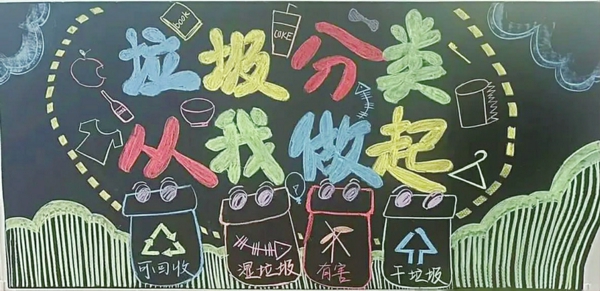 book
COKE
垃圾分类
从我做起
?
可回收
湿垃圾
有害
干垃圾